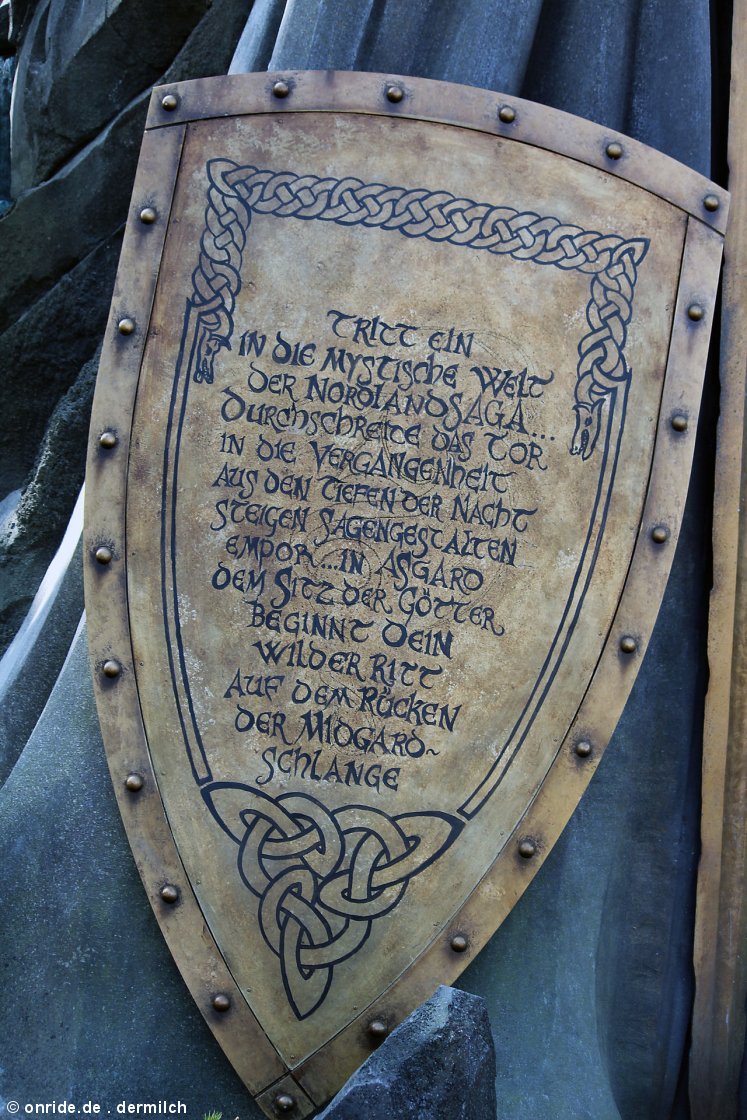 TRITT EIN
IN DIE MYSTISCHE WELT
DER NORDLANDSAGA...
DURCHSCHREITE DAS TOR
IN DIE VERGANGENHEIT
AUS DEN TIEFEN DER NACHT
STEIGEN SAGENGESTALTEN
EMPOR...IN ASGARD
DEM SITZ DER GÖTTER
BEGINNT DEIN
WILDER RITT
AUF DEM RÜCKEN
DER MIDGARD~
SCHLANGE
© onride.de . dermilch